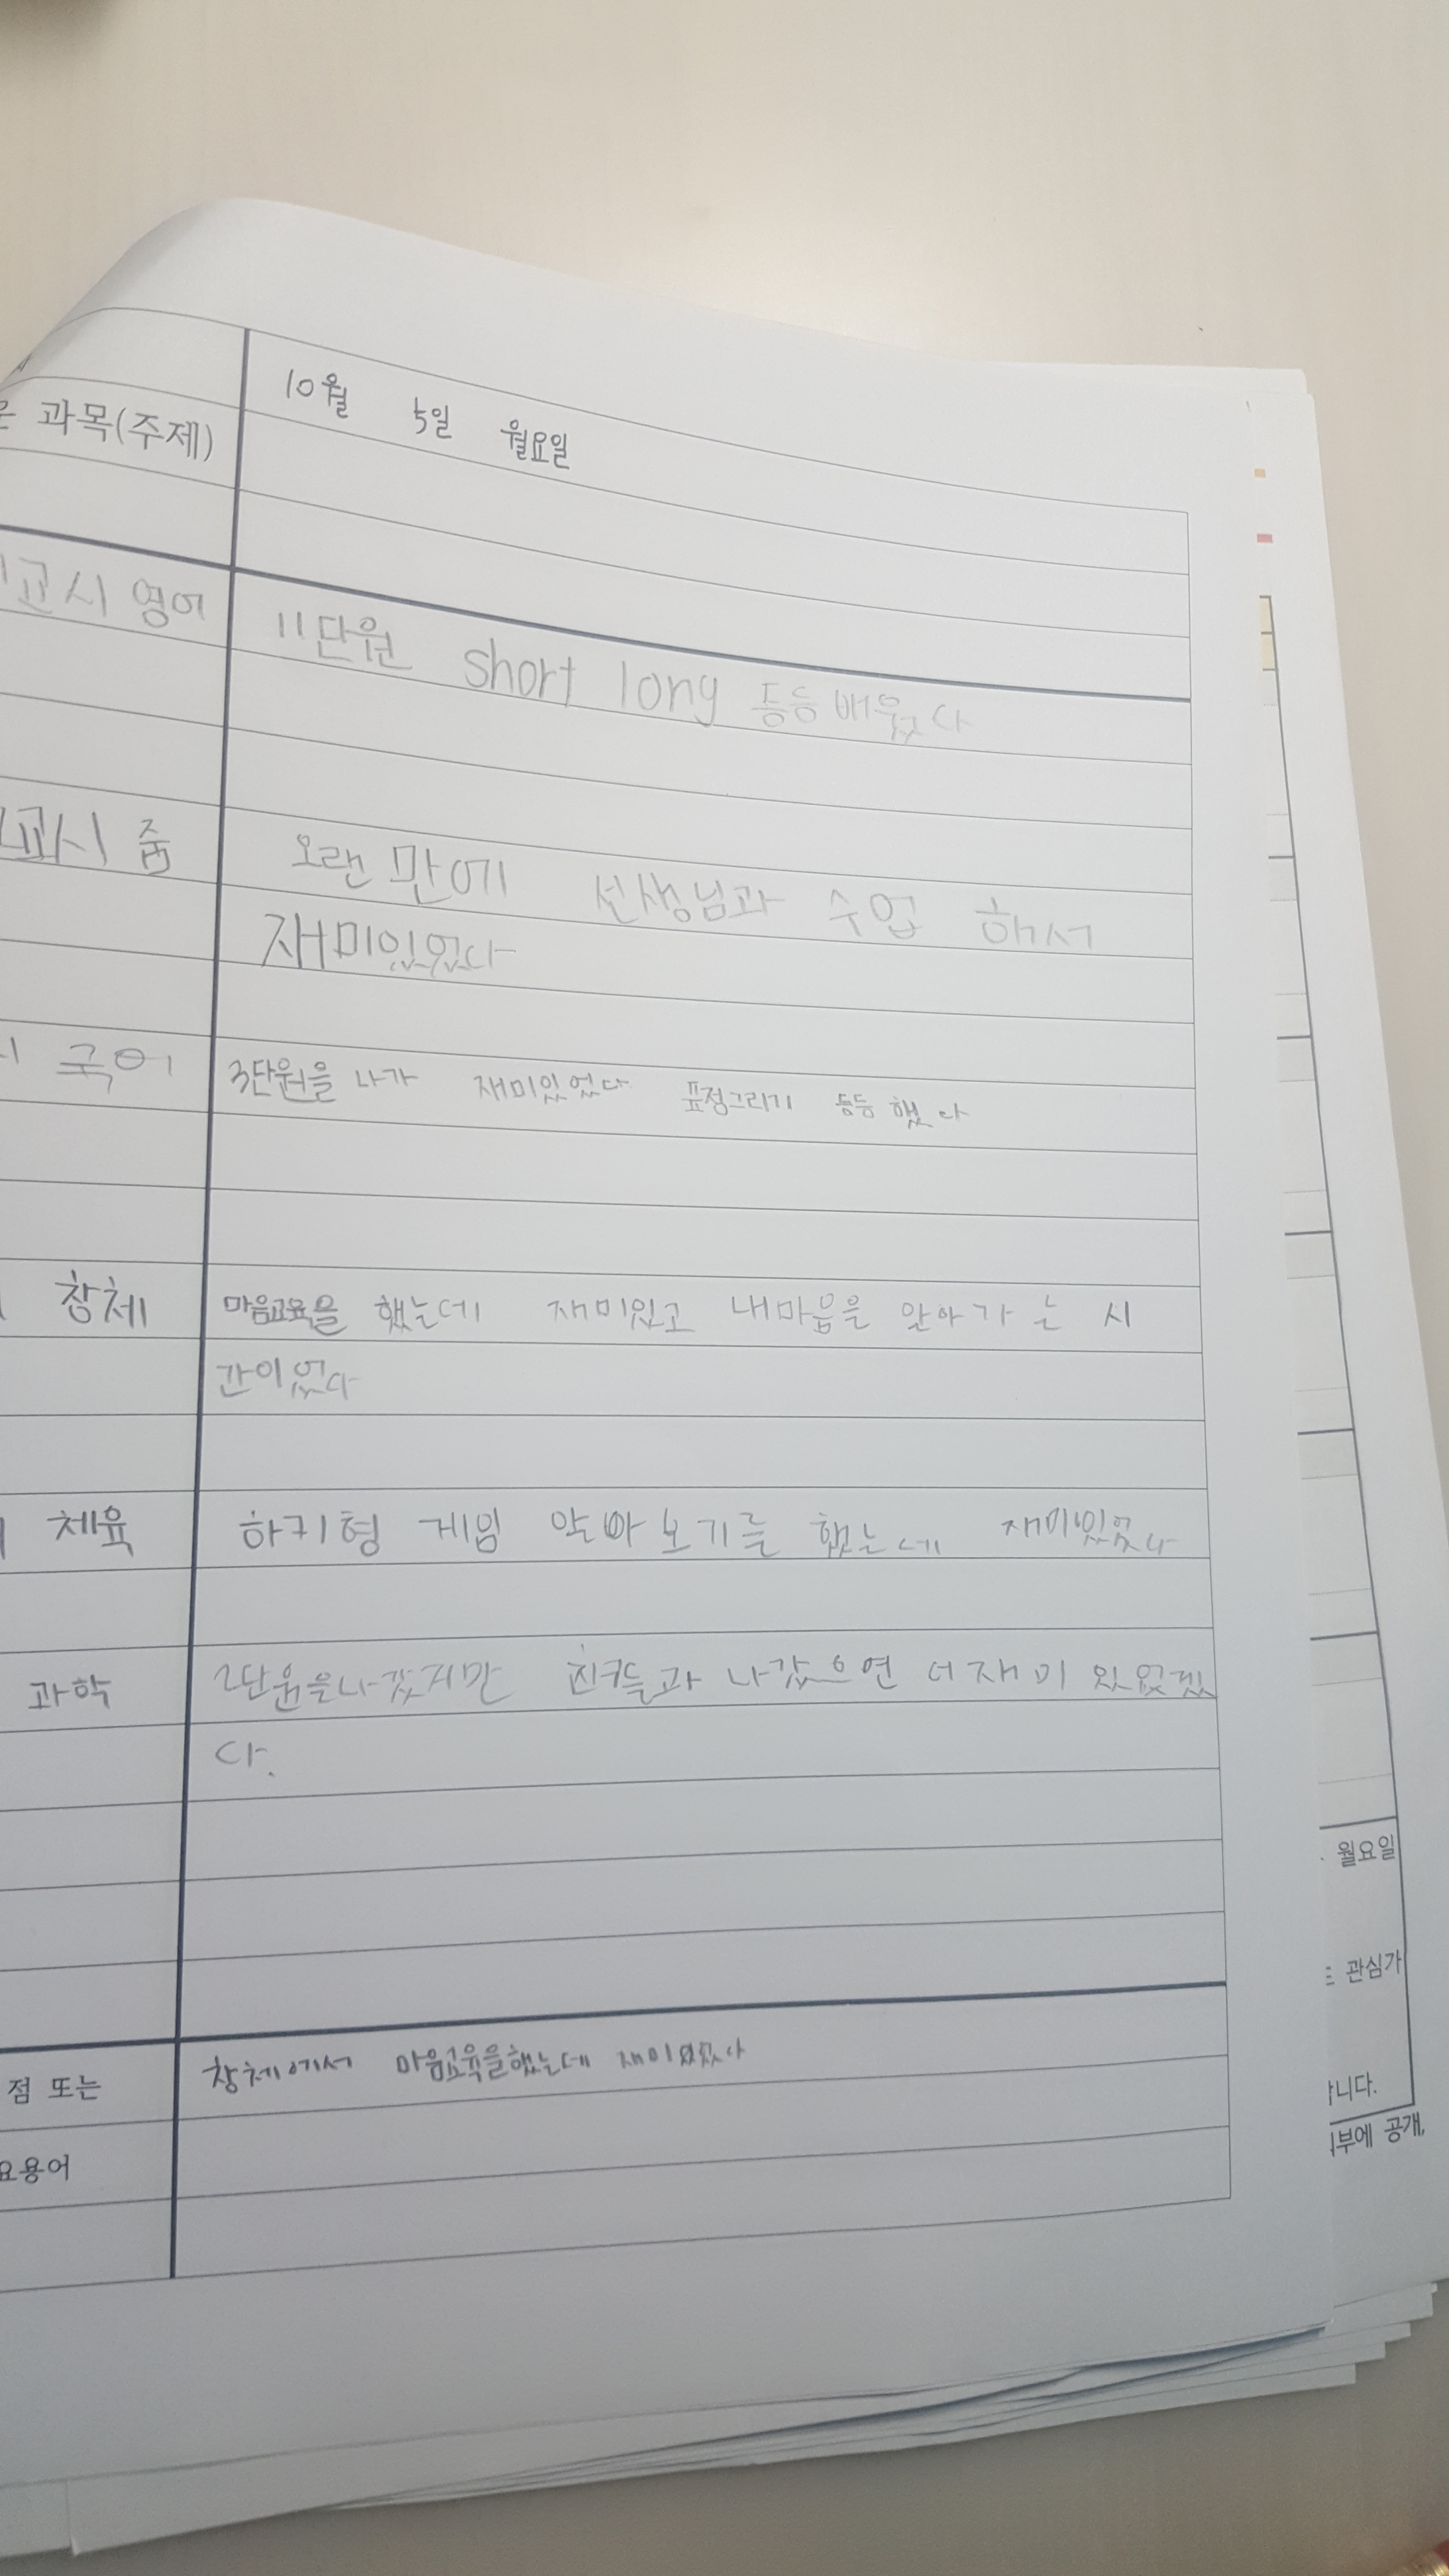 10월 5일 월요일
과목(주제)
교시 영어 11단원 short long 등등 배웠다
교시 줌 오랜만에 선생님과 수업 해서
재미있었다
국어 3단원을 나가 재미있었다 표정그리기 등등 했다
창체 마음교육을 했는데 재미있고 내마음을 알아가는 시
간이었다
체육 하키형 게임 알아보기를 했는데 재미있었다
과학 2단원을나갔지만 친구들과 나갔으면 더재미있었겠
다.
월요일
관심가
점 또는 창체에서 마음교육을했는데 재미있었다
니다.
부에 공개,
요용어